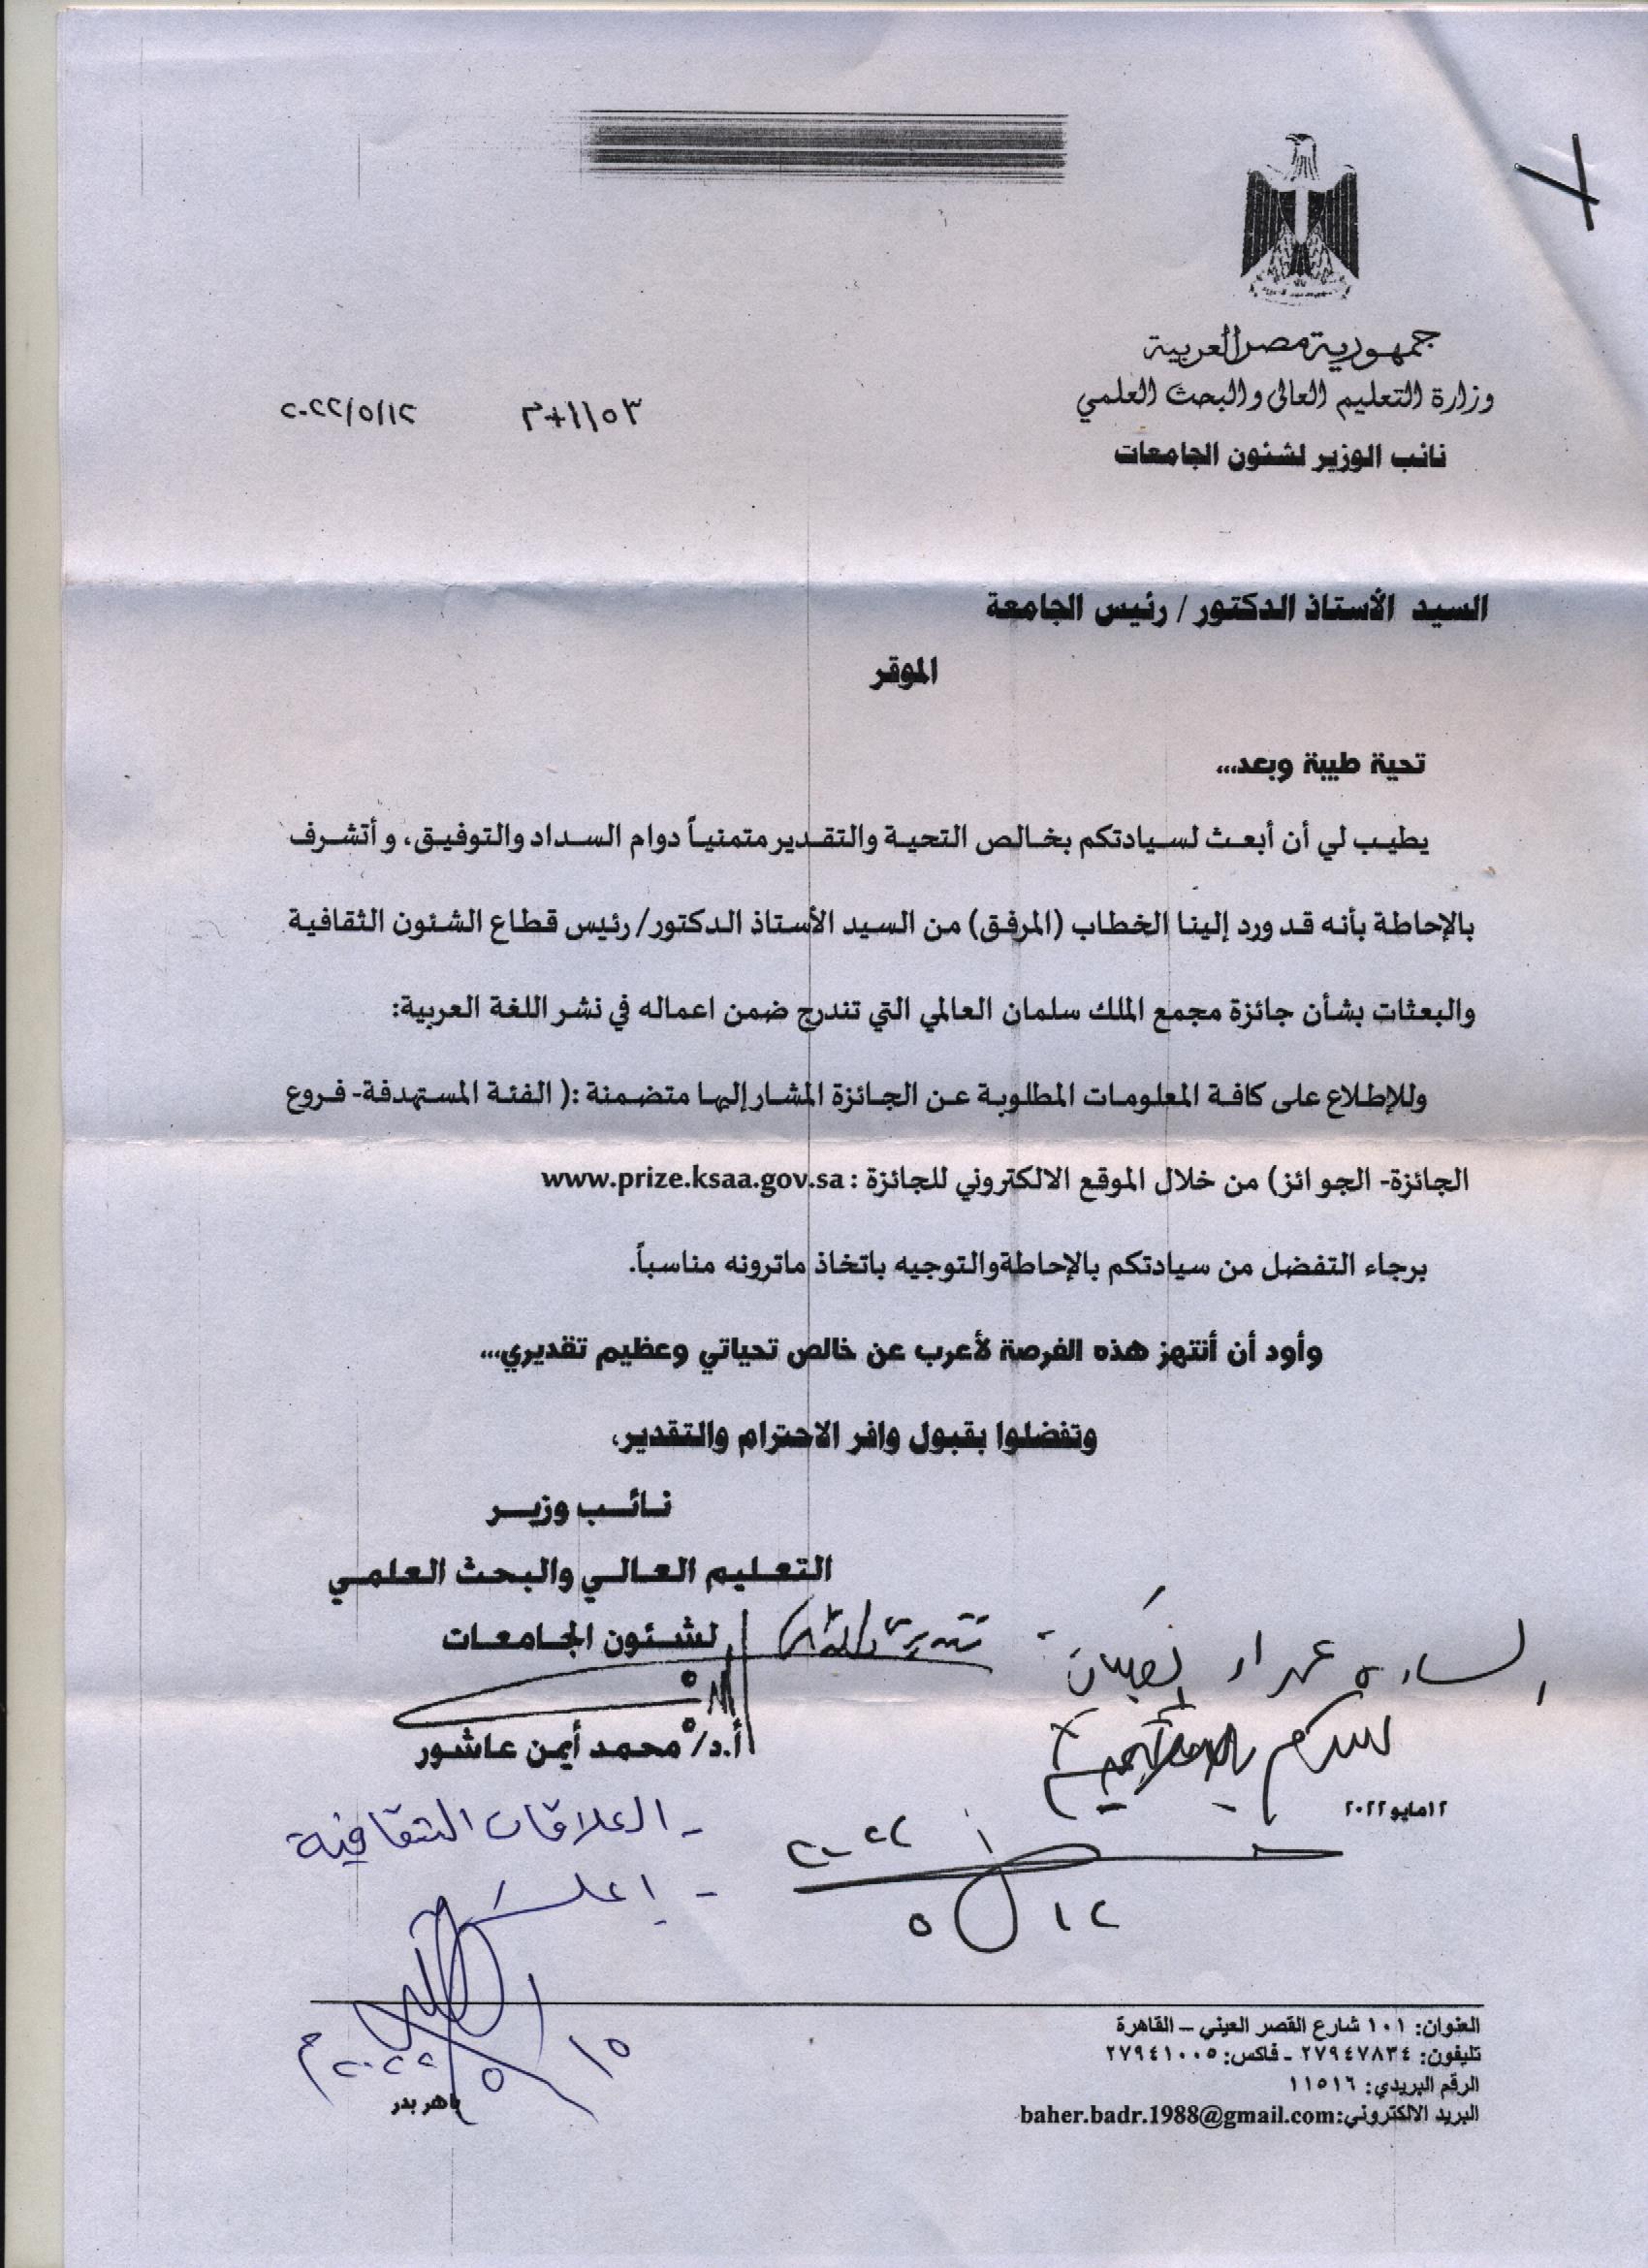 جمهورية مصر العربية
وزارة التعليم العالى والبحث العلمي
نائب الوزير لشئون الجامعات
٢٠٢٢/٥/١٢
السيد الأستاذ الدكتور / رئيس الجامعة
الموقر
تحية طيبة وبعد...
يطيب لي أن أبعث لسيادتكم بخالص التحية والتقدير متمنياً دوام السداد والتوفيق، وأتشرف
بالإحاطة بأنه قد ورد إلينا الخطاب (المرفق) من السيد الأستاذ الدكتور/ رئيس قطاع الشئون الثقافية
والبعثات بشأن جائزة مجمع الملك سلمان العالمي التي تندرج ضمن اعماله في نشر اللغة العربية:
وللإطلاع على كافة المعلومات المطلوبة عن الجائزة المشار إليها متضمنة :( الفئة المستهدفة- فروع
الجائزة- الجوائز) من خلال الموقع الالكتروني للجائزة : www.prize.ksaa.gov.sa
برجاء التفضل من سيادتكم بالإحاطةوالتوجيه باتخاذ ماترونه مناسباً.
وأود أن أنتهز هذه الفرصة لأعرب عن خالص تحياتي وعظيم تقديري...
وتفضلوا بقبول وافر الاحترام والتقدير،
نائب وزير
التعليم العالي والبحث العلمي
لشئون الجامعات
أ.د/ محمد أيمن عاشور
السادة عمداء الكليات
١٢مايو٢٠٢٢
- العلاقات الثقافية
٢٠٢٢
١٢ ٥
١٥ / ٥ / ٢٠٢٢م
العنوان: ١٠١ شارع القصر العيني – القاهرة
تليفون: ٢٧٩٤٧٨٣٤ - فاكس: ٢٧٩٤١٠٠٥
الرقم البريدي: ١١٥١٦
البريد الالكتروني:baher.badr.1988@gmail.com
باهر بدر